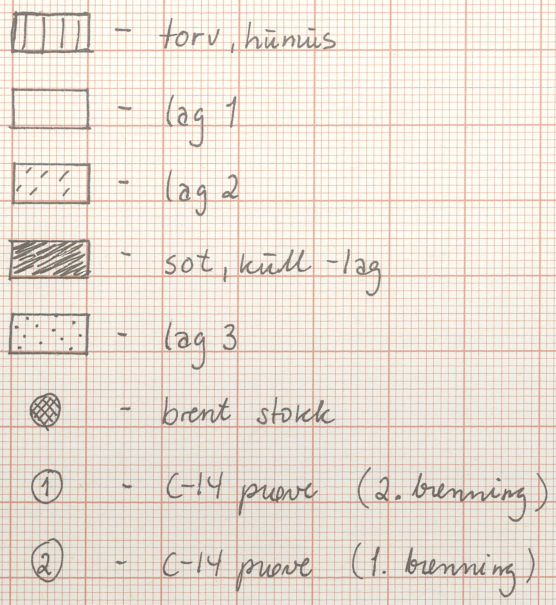 - torv, hūmūs
- lag 1
- lag 2
- sot, kūll -lag
- lag 3
- brent stokk
1 - C-14 prøve (2. brenning)
2 - C-14 prøve (1. brenning)